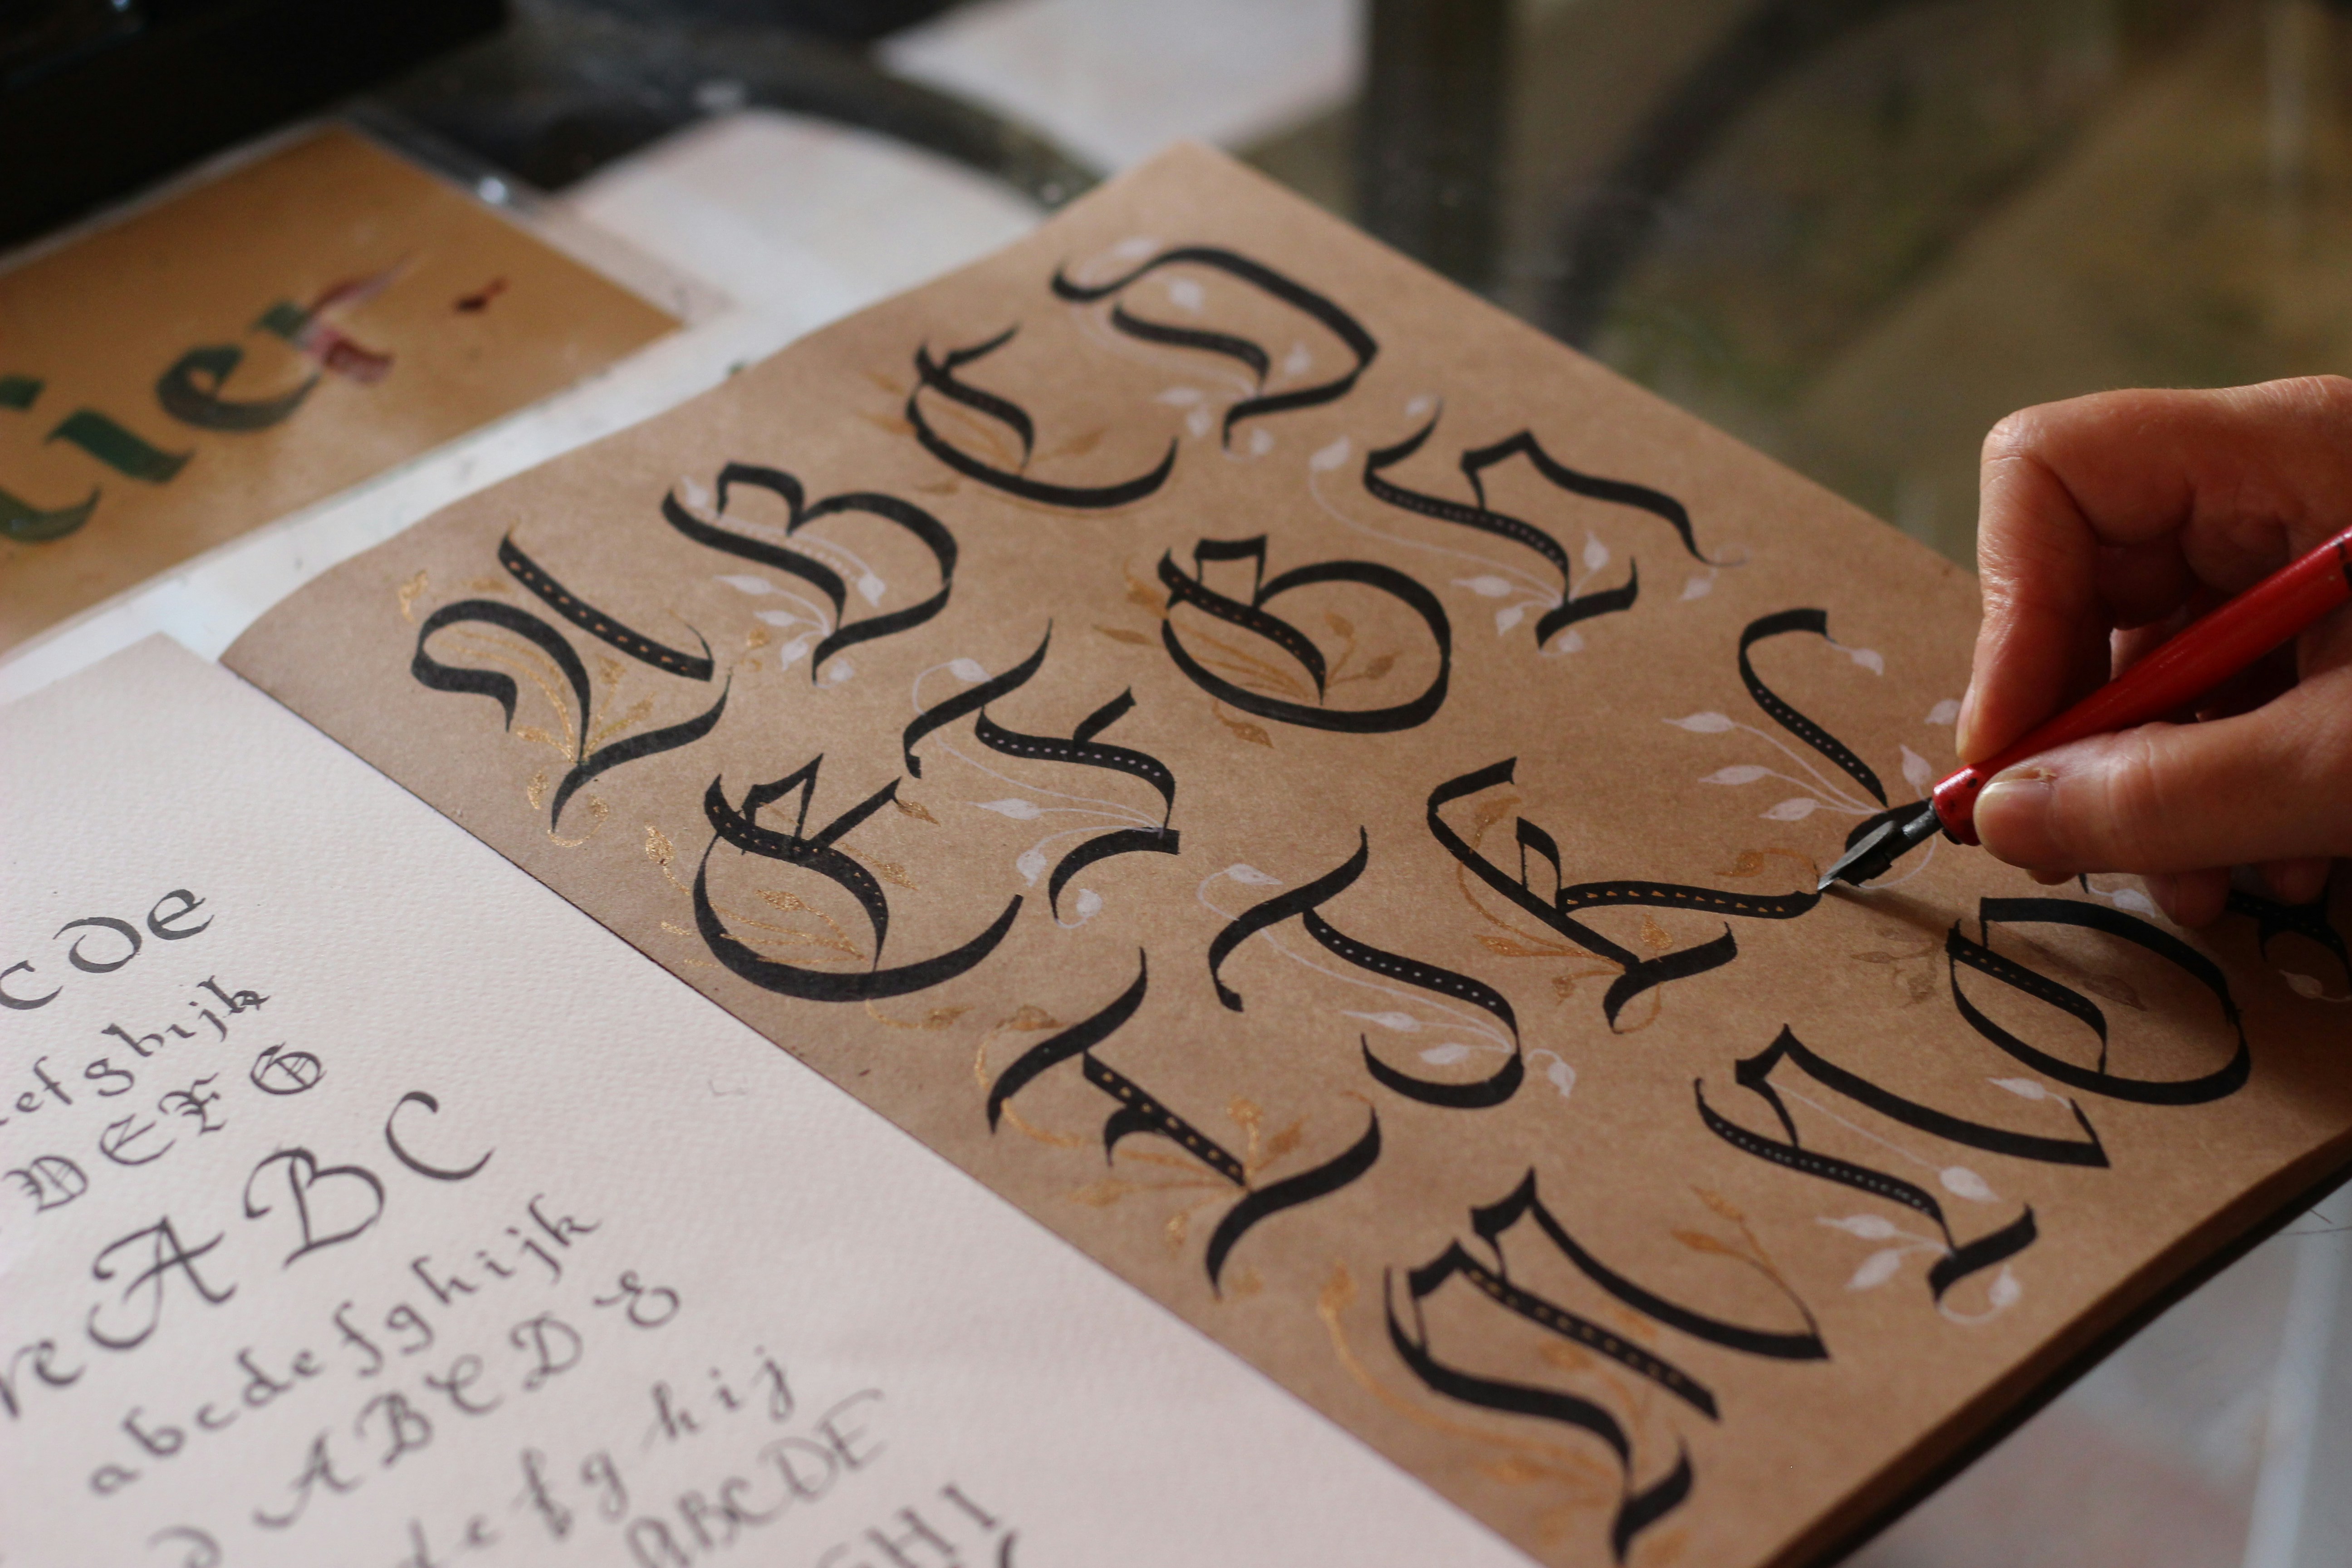 tier
A B C D
E F G H
I J K L
M N O
C De
efghijk
D E F G
re A B C
abcdefghijk
A B C D E
defghij
ABCDE
GHI